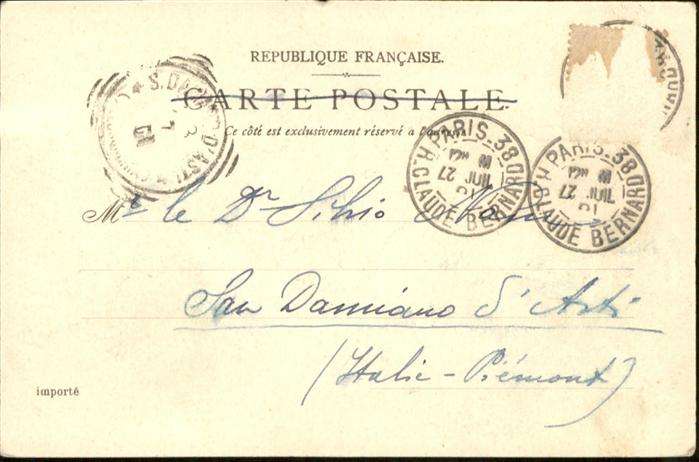 REPUBLIQUE FRANÇAISE.
CARTE POSTALE
Ce côté est exclusivement réservé à l'adresse
S. DA D'ASTI
PARIS_38
12 M
27 JUIL
01
R. CLAUDE BERNARD
PARIS_38
12 M
27 JUIL
01
R. CLAUDE BERNARD
Mr le Dr Silvio
San Damiano d'Asti
(Italie - Piémont)
importé